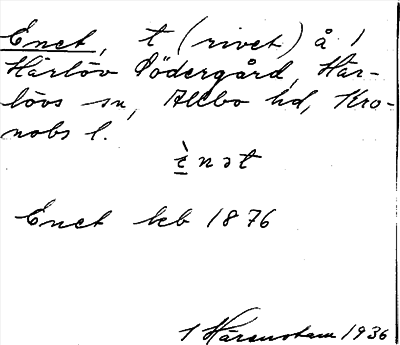 Enet, t (rivet) å 1
Härlöv Södergård, Här-
lövs sn, Allbo hd, Kro-
nobs l.
ὲnət
Enet kb 1876
1 1936